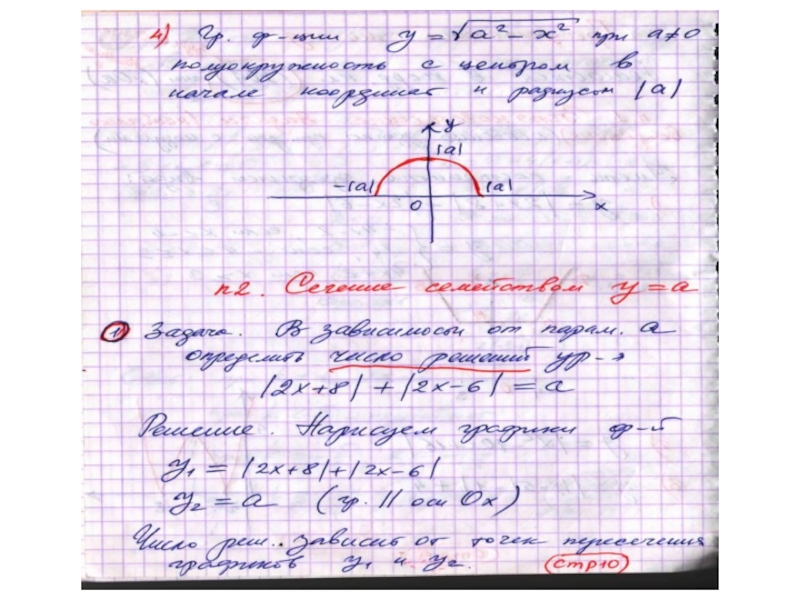 4) Гр. ф-ции y = √a² - x² при a≠0
полуокружность с центром в
начале координат и радиусом |a|
y
|a|
-|a| |a|
0 x
п2. Сечение семейством y = a
1 Задача. В зависимости от парам. a
определить число решений ур-я
|2x+8| + |2x-6| = a
Решение. Нарисуем графики ф-й
y₁ = |2x+8|+|2x-6|
y₂ = a (гр. || оси Ox)
Число реш. зависит от точек пересечения
графиков y₁ и y₂.
стр10